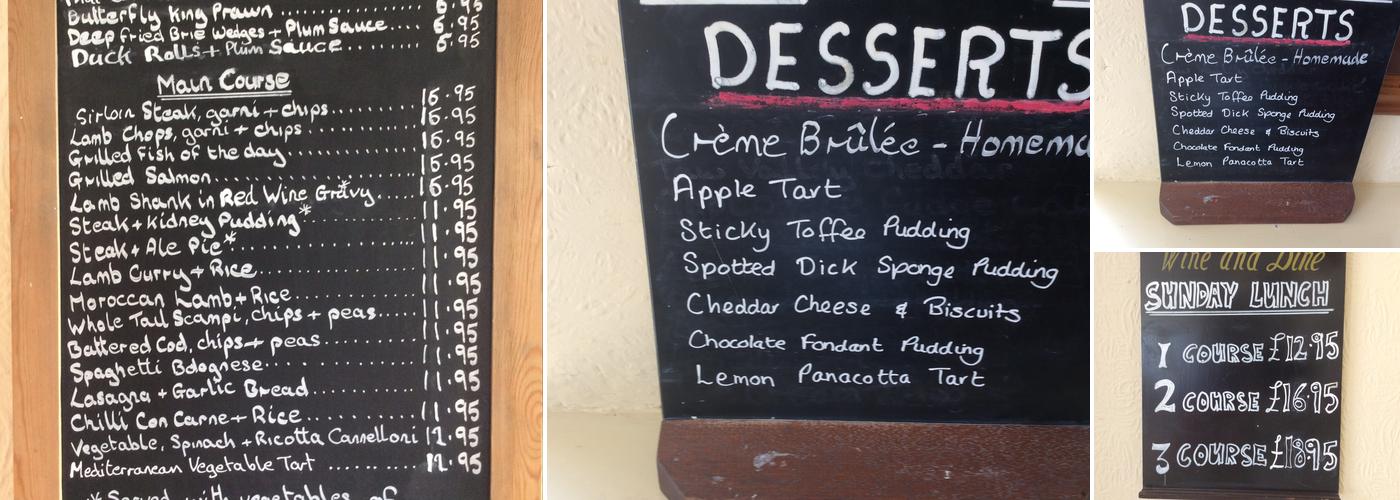 Butterfly King Prawn ........ 6.95
Deep fried Brie Wedges + Plum Sauce .... 6.95
Duck Rolls + Plum Sauce ........ 6.95
Main Course
Sirloin Steak, garni + chips ........ 16.95
Lamb Chops, garni + chips ........ 16.95
Grilled fish of the day ........ 16.95
Grilled Salmon ........ 16.95
Lamb Shank in Red Wine Gravy* .... 16.95
Steak + Kidney Pudding* ........ 11.95
Steak + Ale Pie* ........ 11.95
Lamb Curry + Rice ........ 11.95
Moroccan Lamb + Rice ........ 11.95
Whole Tail Scampi, chips + peas .... 11.95
Battered Cod, chips + peas ........ 11.95
Spaghetti Bolognese ........ 11.95
Lasagna + Garlic Bread ........ 11.95
Chilli Con Carne + Rice ........ 11.95
Vegetable, Spinach + Ricotta Cannelloni 12.95
Mediterranean Vegetable Tart ........ 12.95
* Served with vegetables of
DESSERTS
Crème Brûlée - Homema
Apple Tart
Sticky Toffee Pudding
Spotted Dick Sponge Pudding
Cheddar Cheese & Biscuits
Chocolate Fondant Pudding
Lemon Panacotta Tart
DESSERTS
Crème Brûlée - Homemade
Apple Tart
Sticky Toffee Pudding
Spotted Dick Sponge Pudding
Cheddar Cheese & Biscuits
Chocolate Fondant Pudding
Lemon Panacotta Tart
Wine and Dine
SUNDAY LUNCH
1 COURSE £12.95
2 COURSE £16.95
3 COURSE £18.95